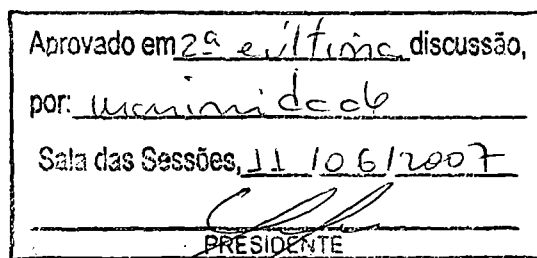 Aprovado em 2ª e última discussão,
por: unanimidade
Sala das Sessões, 11/06/2007
PRESIDENTE